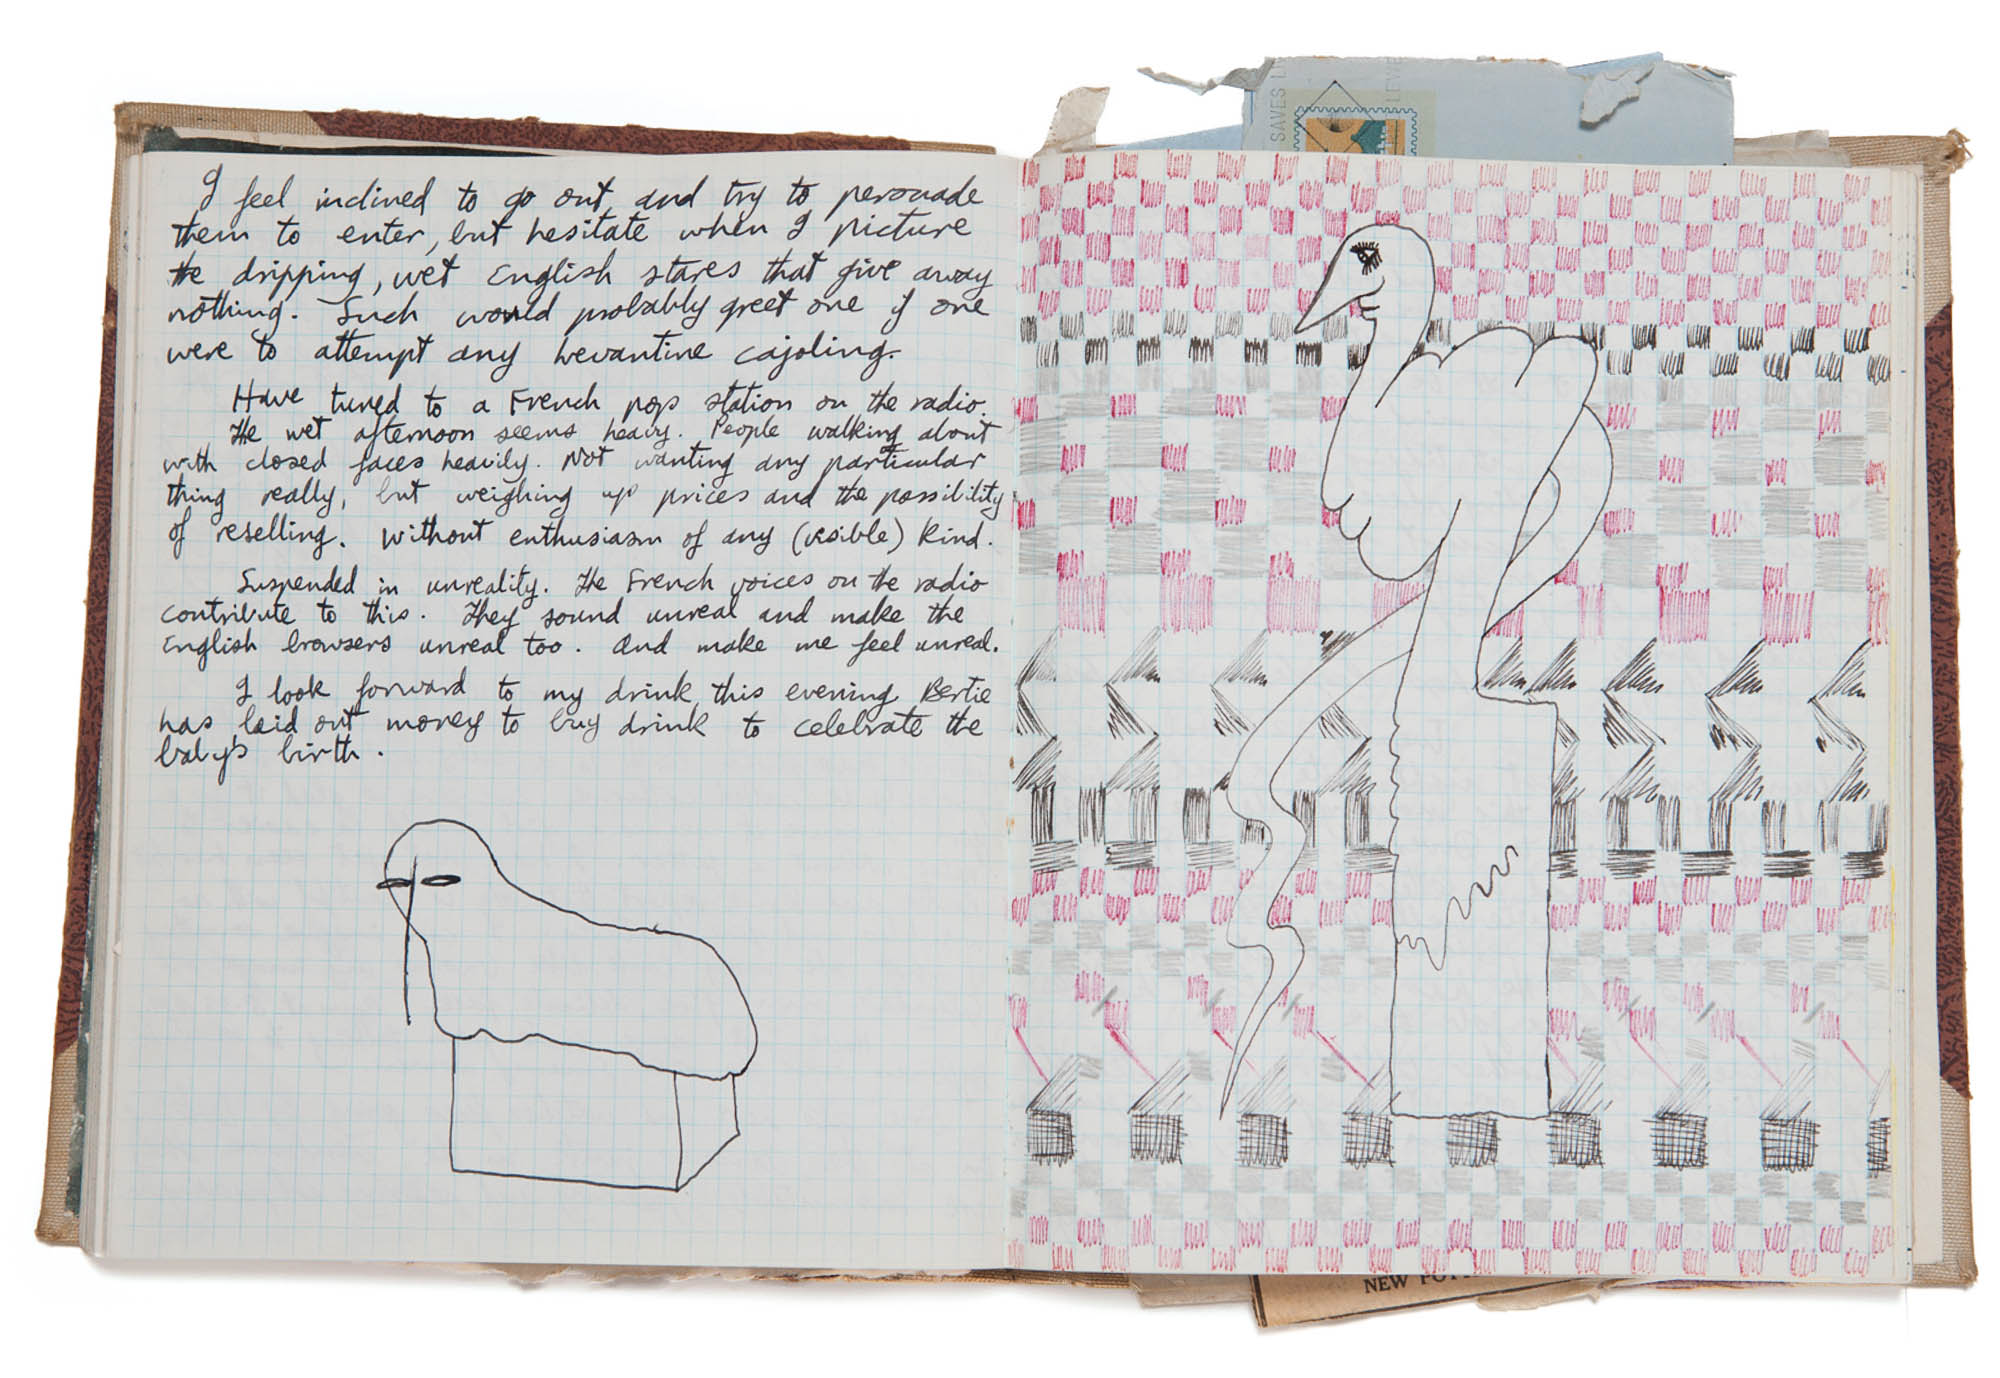 I feel inclined to go out, and try to persuade
them to enter, but hesitate when I picture
the dripping, wet English stares that give away
nothing. Such would probably greet one if one
were to attempt any Levantine cajoling.
Have tuned to a French pop station on the radio.
The wet afternoon seems heavy. People walking about
with closed faces heavily. Not wanting any particular
thing really, but weighing up prices and the possibility
of reselling. Without enthusiasm of any (visible) kind.
Suspended in unreality. The French voices on the radio
contribute to this. They sound unreal and make the
English browsers unreal too. And make me feel unreal.
I look forward to my drink this evening. Bertie
has laid out money to buy drink to celebrate the
baby's birth.
SAVES
NEW